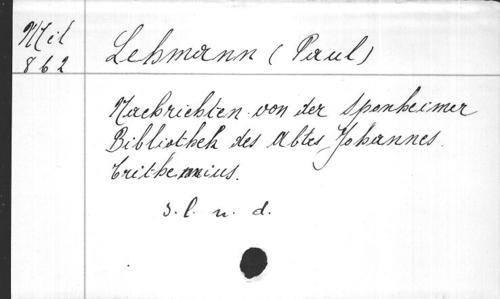 Mél
862
Lehmann (Paul)
Nachrichten von der Sponheimer
Bibliothek des Abtes Johannes
Trithemius.
s. l. n. d.